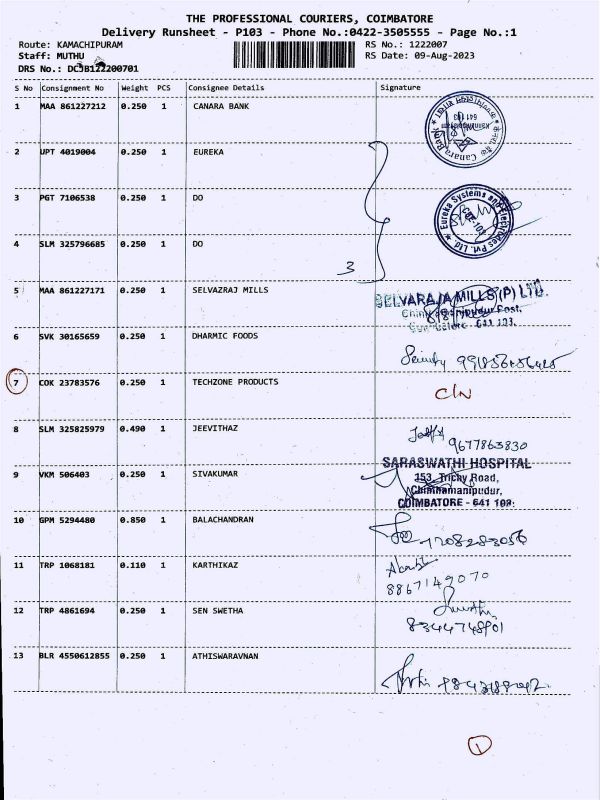 THE PROFESSIONAL COURIERS, COIMBATORE
Delivery Runsheet - P103 - Phone No.:0422-3505555 - Page No.:1
Route: KAMACHIPURAM RS No.: 1222007
Staff: MUTHU RS Date: 09-Aug-2023
DRS No.: DCJB122200701
S No Consignment No Weight PCS Consignee Details Signature
1 MAA 861227212 0.250 1 CANARA BANK
Canara Bank
641 103
2 UPT 4019004 0.250 1 EUREKA
3 PGT 7106538 0.250 1 DO
Eureka Systems and Electrodes Pvt. Ltd.
CBE-103
4 SLM 325796685 0.250 1 DO
3
5 MAA 861227171 0.250 1 SELVAZRAJ MILLS
SELVARAJA MILLS (P) LTD.
Post,
641 103.
6 SVK 30165659 0.250 1 DHARMIC FOODS
Security
7 COK 23783576 0.250 1 TECHZONE PRODUCTS
C/N
8 SLM 325825979 0.490 1 JEEVITHAZ
9677863830
9 VKM 506403 0.250 1 SIVAKUMAR
SARASWATHI HOSPITAL
153, Trichy Road,
Chinnamanipudur,
COIMBATORE - 641 103.
10 GPM 5294480 0.850 1 BALACHANDRAN
11 TRP 1068181 0.110 1 KARTHIKAZ
8867149070
12 TRP 4861694 0.250 1 SEN SWETHA
8344748901
13 BLR 4550612855 0.250 1 ATHISWARAVNAN
1